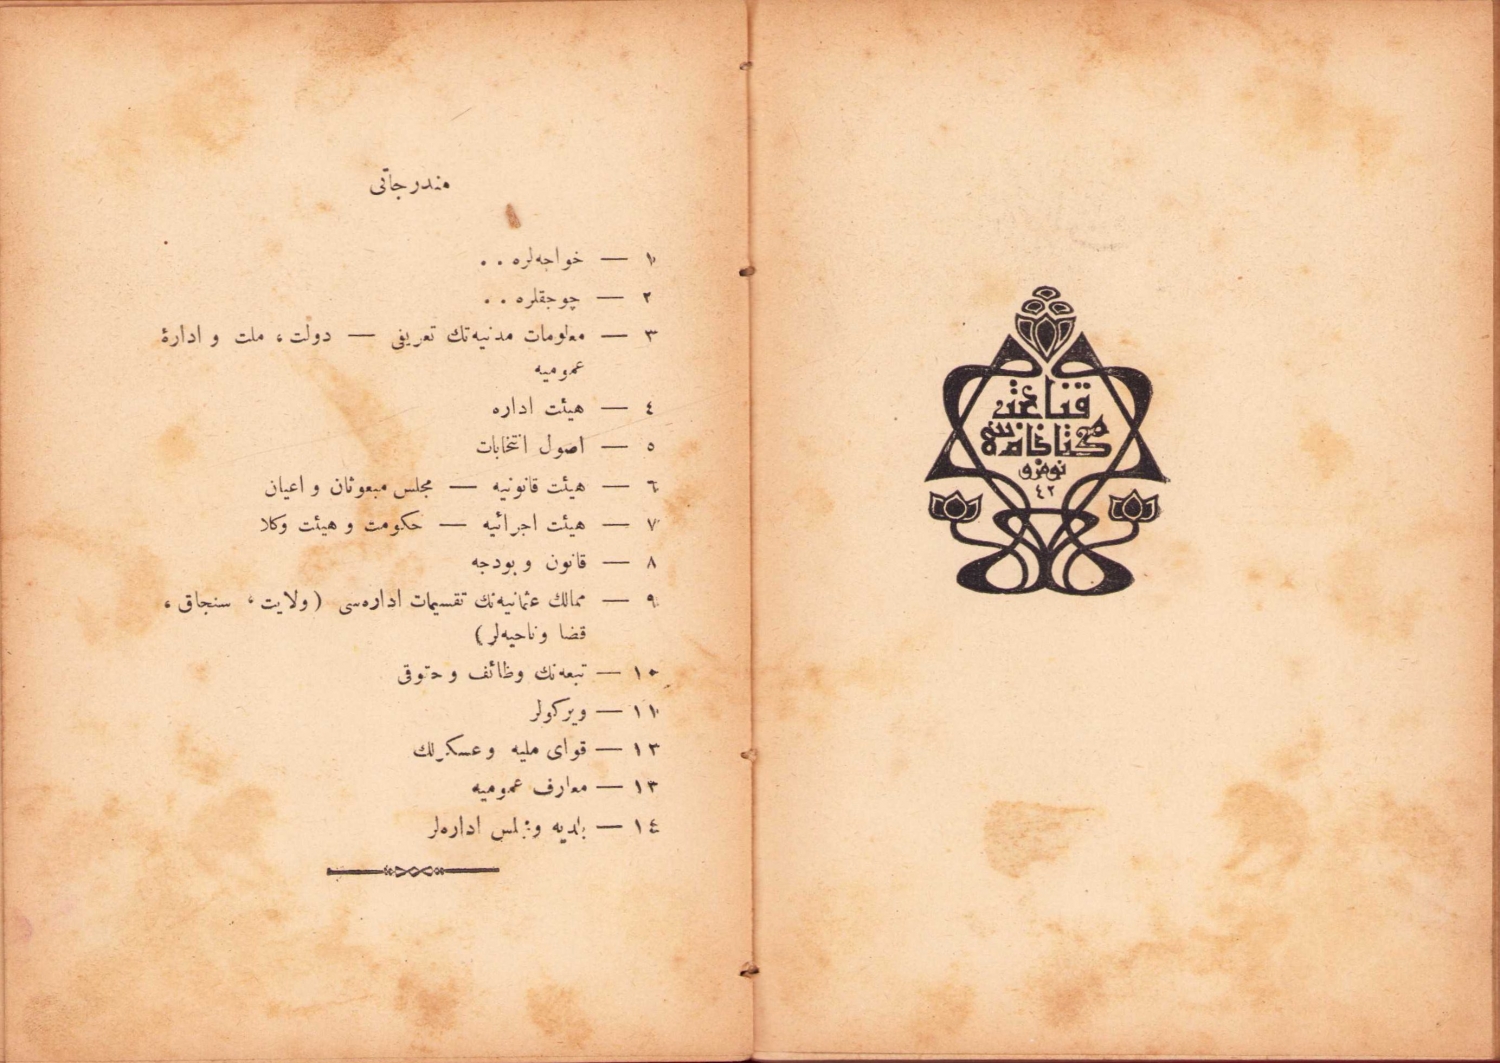 قناعت
كتابخانه‌سی
نومرو
٤٢
مندرجاتی
١ — خواجه‌لره . .
٢ — چوجقلره . .
٣ — معلومات مدنیه‌نك تعریفی — دولت ، ملت و ادارۀ
عمومیه
٤ — هیئت اداره
٥ — اصول انتخابات
٦ — هیئت قانونیه — مجلس مبعوثان و اعیان
٧ — هیئت اجرائیه — حكومت و هیئت وكلا
٨ — قانون و بودجه
٩ — ممالك عثمانیه‌نك تقسیمات اداره‌سی ( ولایت ، سنجاق ،
قضا و ناحیه‌لر )
١٠ — تبعه‌نك وظائف و حقوقی
١١ — ویركولر
١٢ — قوای ملیه و عسكرلك
١٣ — معارف عمومیه
١٤ — بلدیه و مجلس اداره‌لر